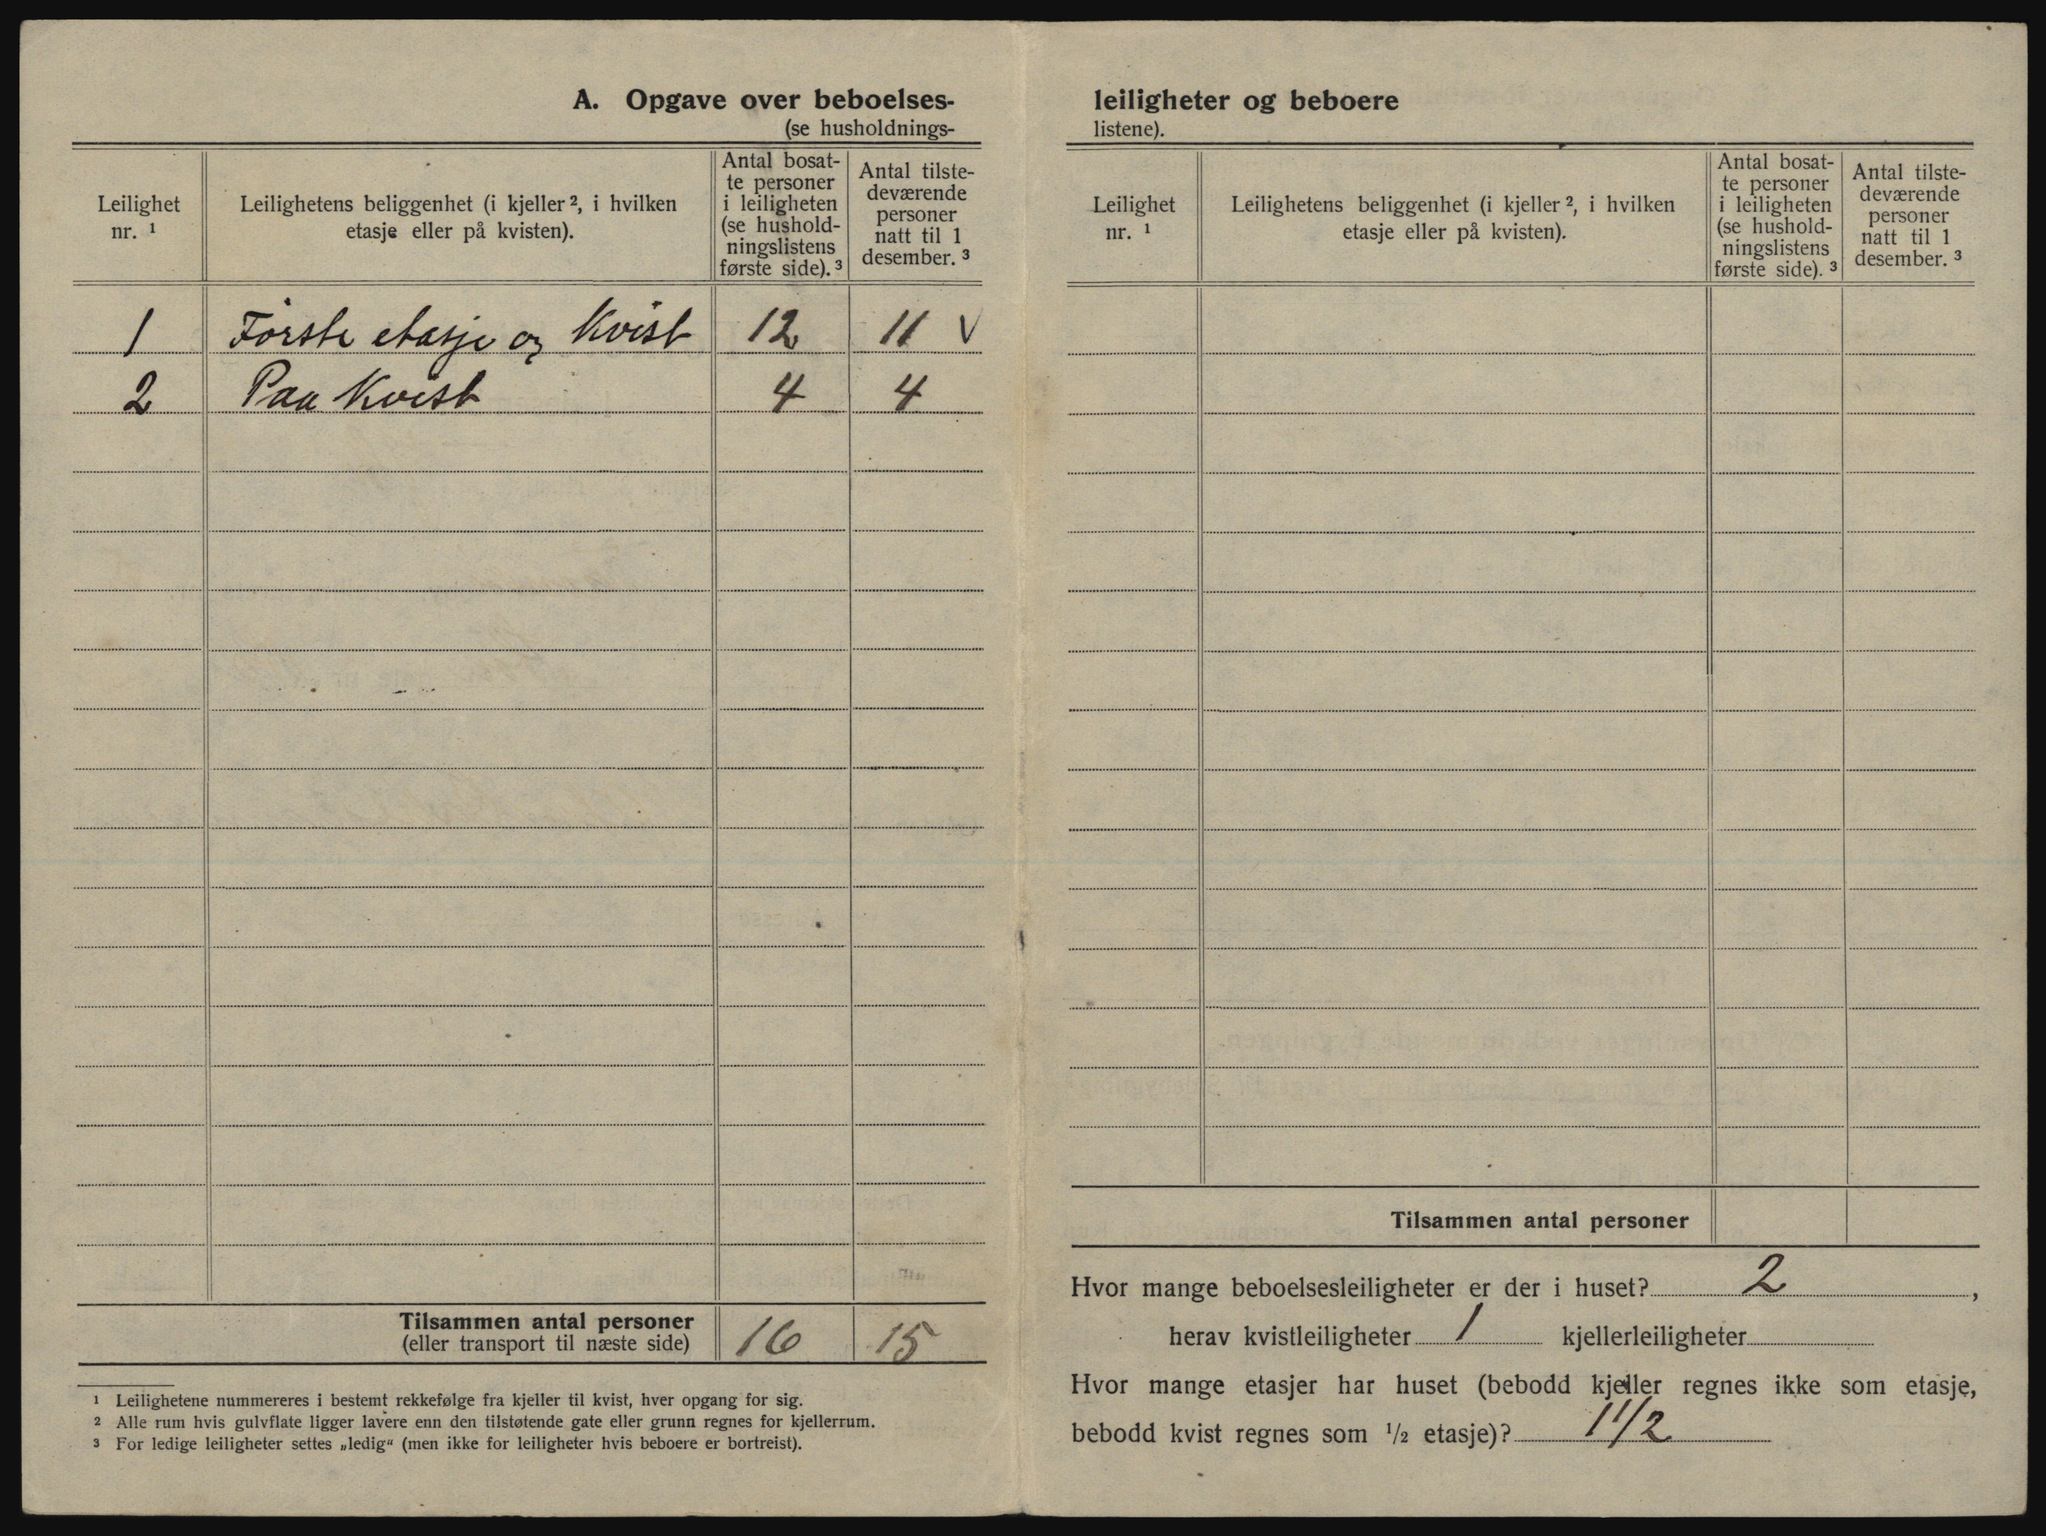 A. Opgave over beboelses-
(se husholdnings-
Leilighet
nr. ¹
Leilighetens beliggenhet (i kjeller ², i hvilken
etasje eller på kvisten).
Antal bosat-
te personer
i leiligheten
(se hushold-
ningslistens
første side). ³
Antal tilste-
deværende
personer
natt til 1
desember. ³
1 Første etasje og Kvist 12 11 V
2 Paa Kvist 4 4
Tilsammen antal personer
(eller transport til næste side) 16 15
¹ Leilighetene nummereres i bestemt rekkefølge fra kjeller til kvist, hver opgang for sig.
² Alle rum hvis gulvflate ligger lavere enn den tilstøtende gate eller grunn regnes for kjellerrum.
³ For ledige leiligheter settes „ledig“ (men ikke for leiligheter hvis beboere er bortreist).
leiligheter og beboere
listene).
Leilighet
nr. ¹
Leilighetens beliggenhet (i kjeller ², i hvilken
etasje eller på kvisten).
Antal bosat-
te personer
i leiligheten
(se hushold-
ningslistens
første side). ³
Antal tilste-
deværende
personer
natt til 1
desember. ³
Tilsammen antal personer
Hvor mange beboelsesleiligheter er der i huset? 2,
herav kvistleiligheter 1 kjellerleiligheter
Hvor mange etasjer har huset (bebodd kjeller regnes ikke som etasje,
bebodd kvist regnes som ½ etasje)? 1 1/2